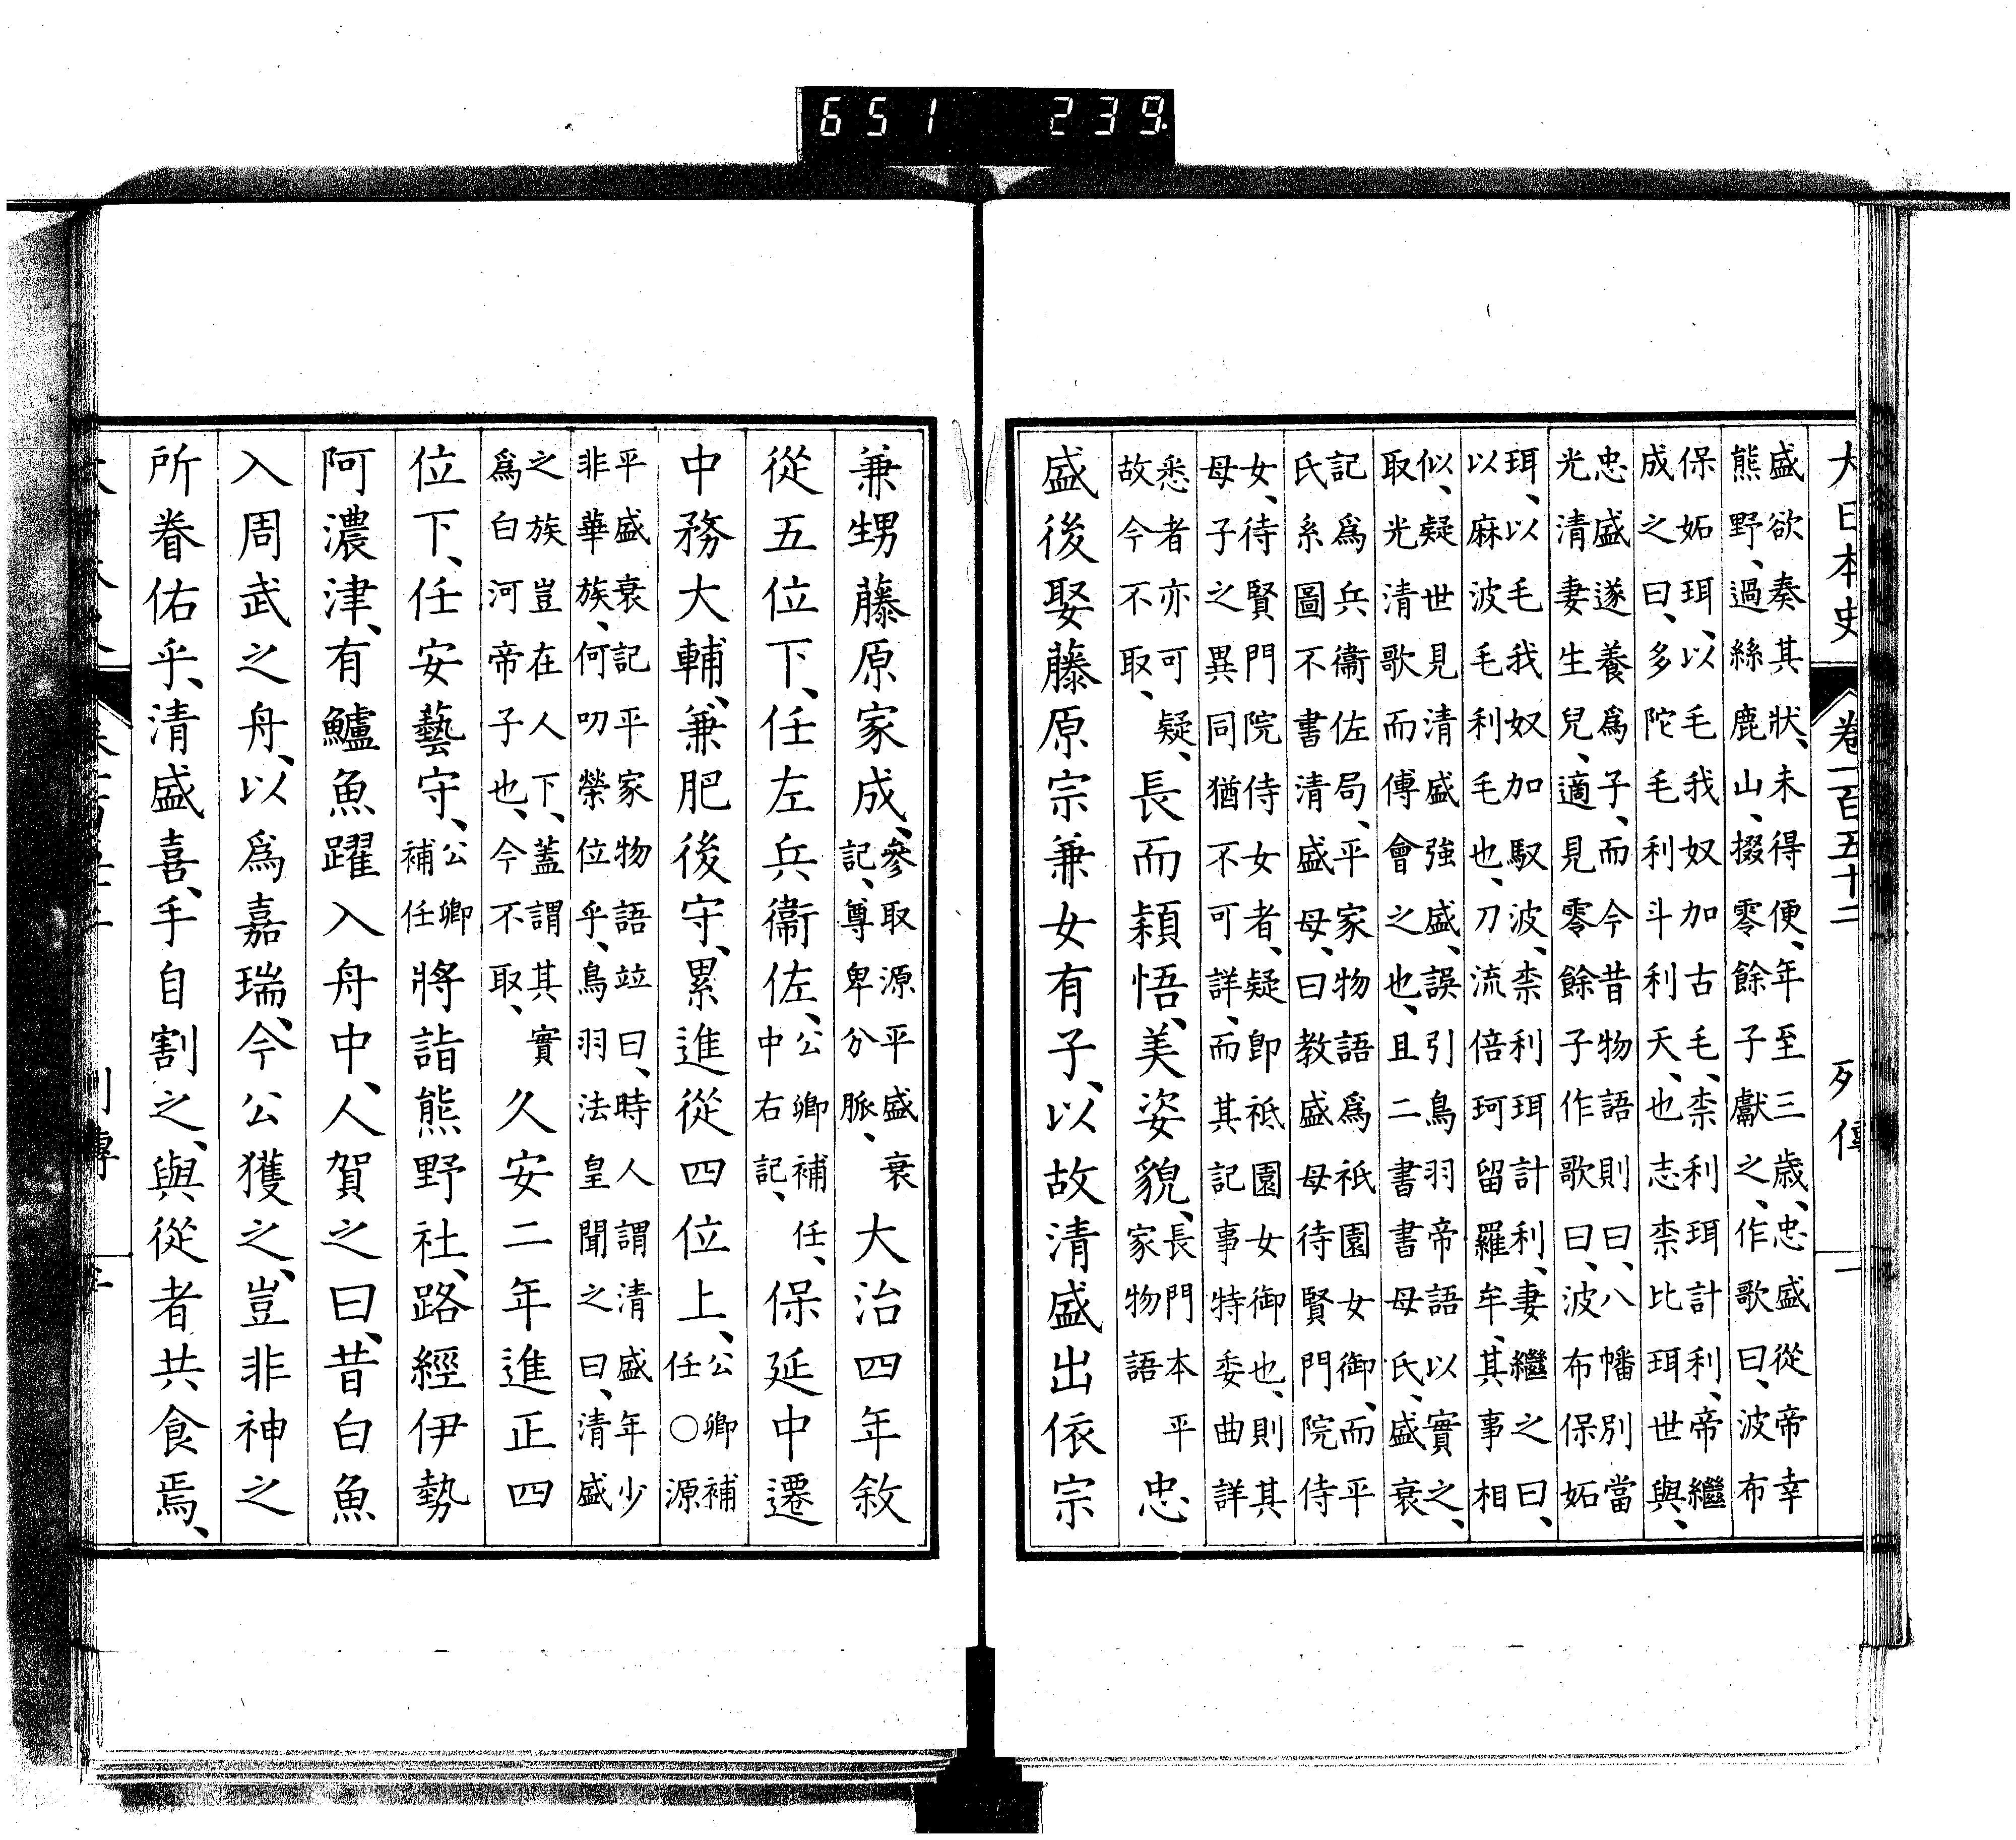 651 239.
大日本史 卷一百五十二 列傳 一
盛欲奏其狀、未得便、年至三歳、忠盛從帝幸
熊野、過絲鹿山、掇零餘子獻之、作歌曰、波布
保妬珥、以毛我奴加古毛、柰利珥計利、帝繼
成之曰、多陀毛利斗利天、也志柰比珥世與、
忠盛遂養爲子、而今昔物語則曰、八幡別當
光清妻生兒、適見零餘子作歌曰、波布保妬
珥、以毛我奴加馭波、柰利珥計利、妻繼之曰、
以麻波毛利毛也、刀流倍珂留羅牟、其事相
似、疑世見清盛強盛、誤引鳥羽帝語以實之、
取光清歌而傅會之也、且二書書母氏、盛衰
記爲兵衞佐局、平家物語爲祇園女御、而平
氏系圖不書清盛母、曰教盛母待賢門院侍
女、待賢門院侍女者、疑卽祇園女御也、則其
母子之異同猶不可詳、而其記事特委曲詳
悉者亦可疑、故今不取、長而穎悟、美姿貌、長門本平家物語忠
盛後娶藤原宗兼女有子、以故清盛出依宗
兼甥藤原家成、參取源平盛衰記、尊卑分脈、大治四年敘
從五位下、任左兵衞佐、公卿補任、中右記、保延中遷
中務大輔、兼肥後守、累進從四位上、公卿補任○源
平盛衰記平家物語竝曰、時人謂清盛年少
非華族、何叨榮位乎、鳥羽法皇聞之曰、清盛
之族豈在人下、蓋謂其實爲白河帝子也、今不取、久安二年進正四
位下、任安藝守、公卿補任將詣熊野社、路經伊勢
阿濃津、有鱸魚躍入舟中、人賀之曰、昔白魚
入周武之舟、以爲嘉瑞、今公獲之、豈非神之
所眷佑乎、清盛喜、手自割之、與從者共食焉、